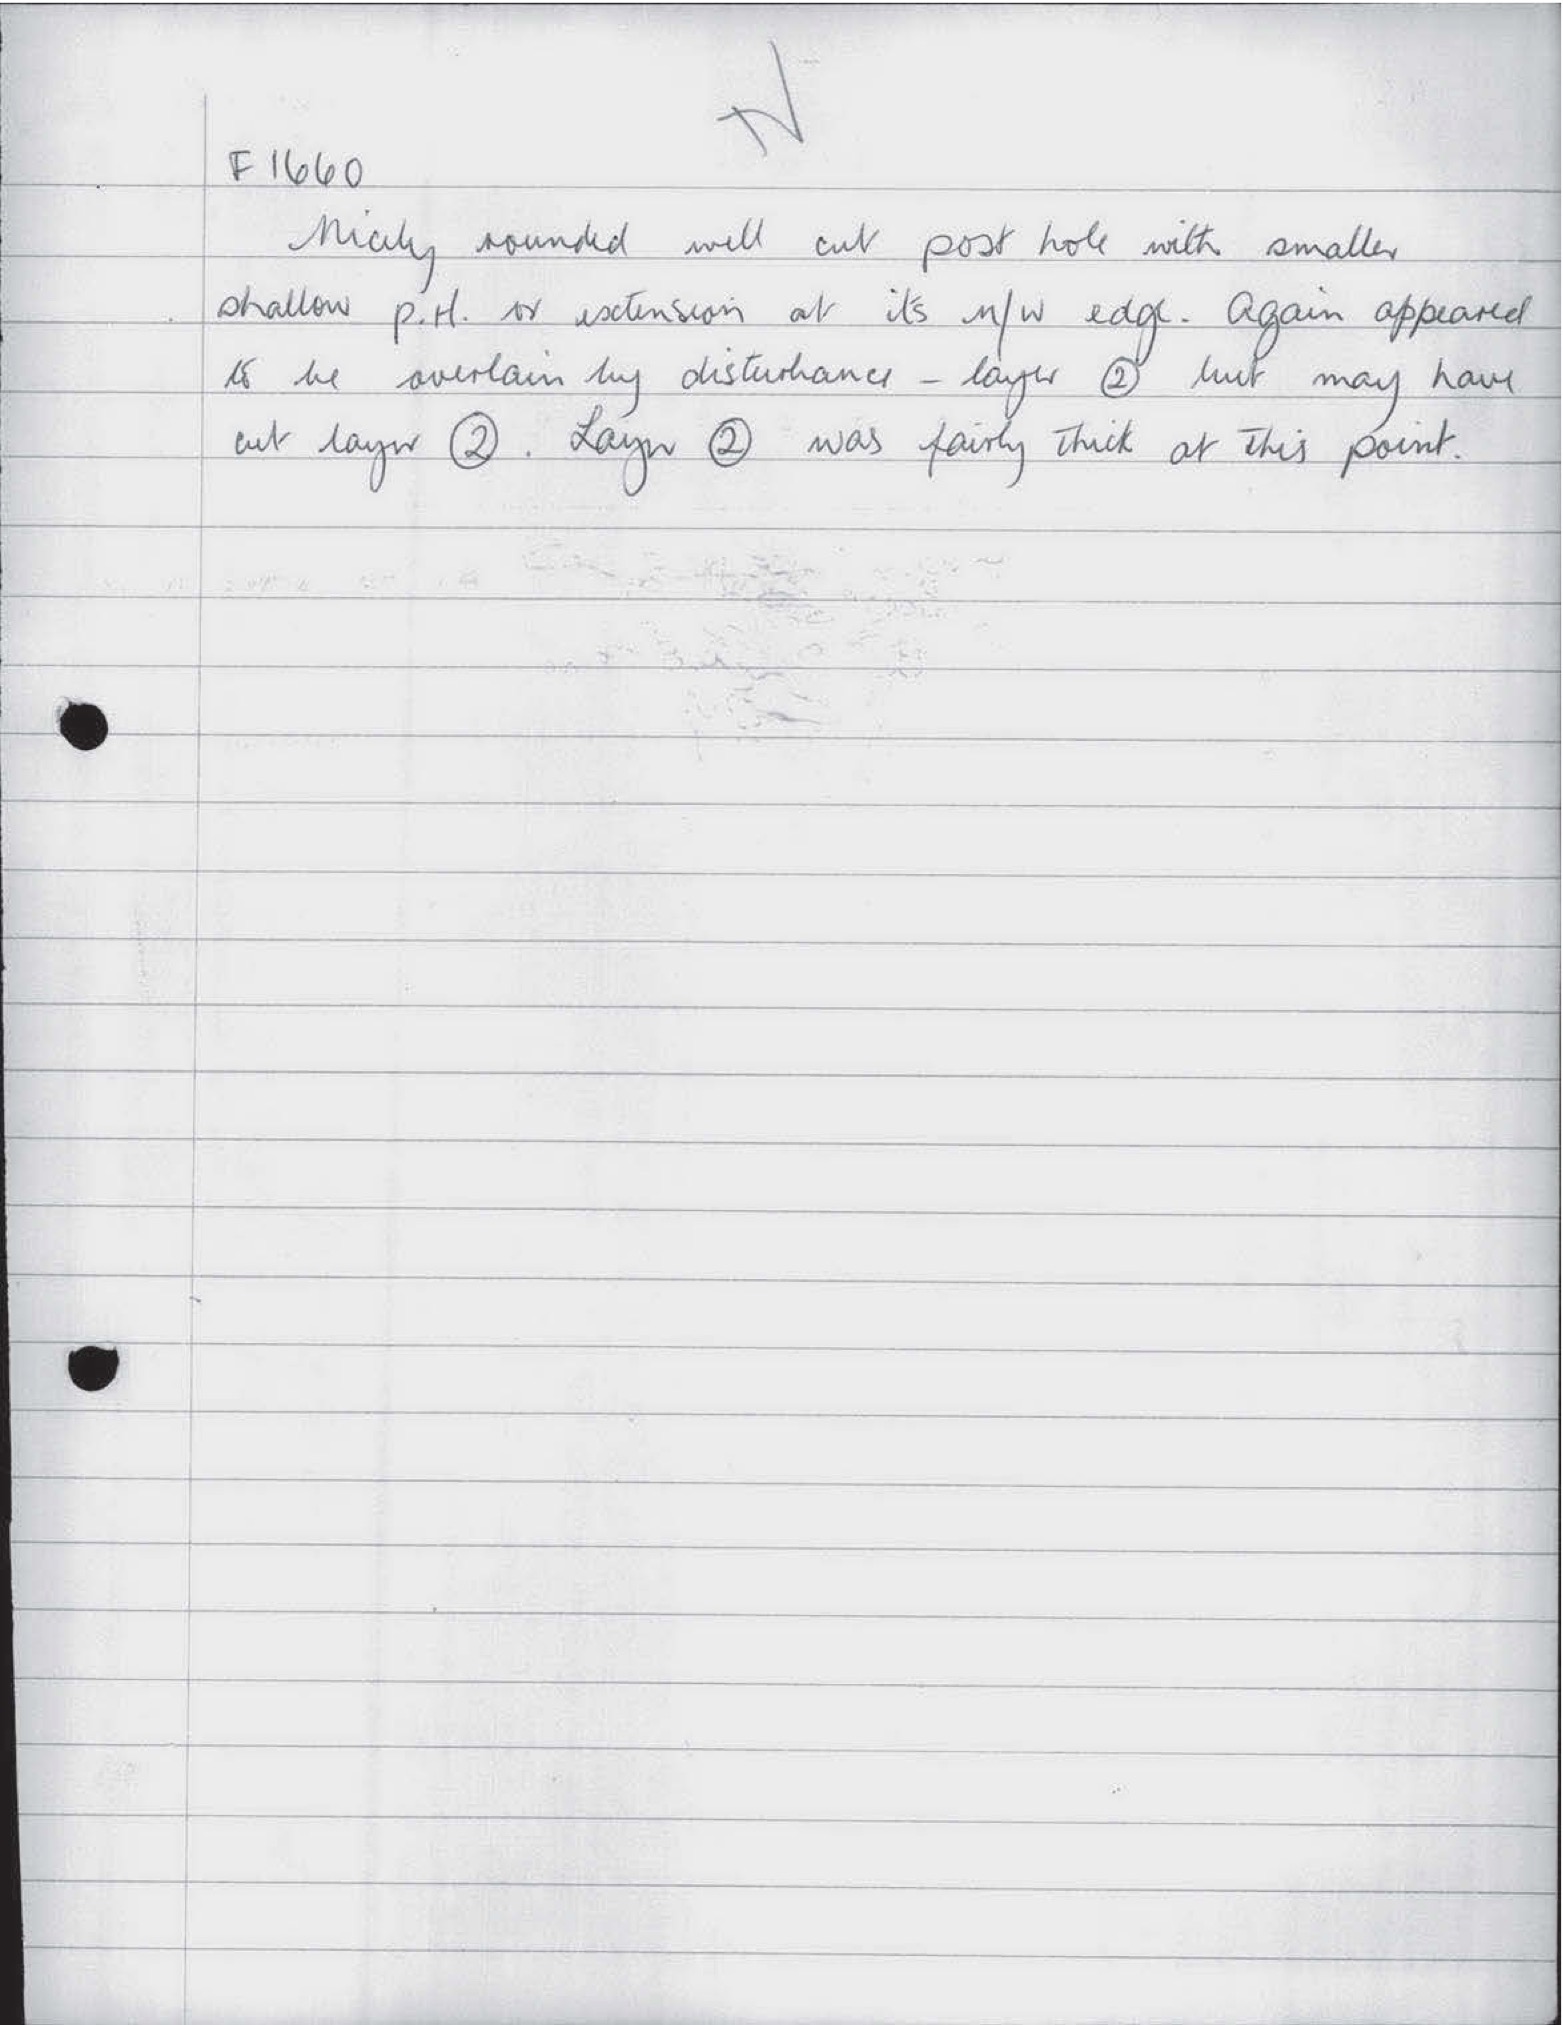 F 1660
Nicely rounded well cut post hole with smaller
shallow p.H. or extension at it's n/w edge. Again appeared
to be overlain by disturbance - layer ② but may have
cut layer ②. Layer ② was fairly thick at this point.